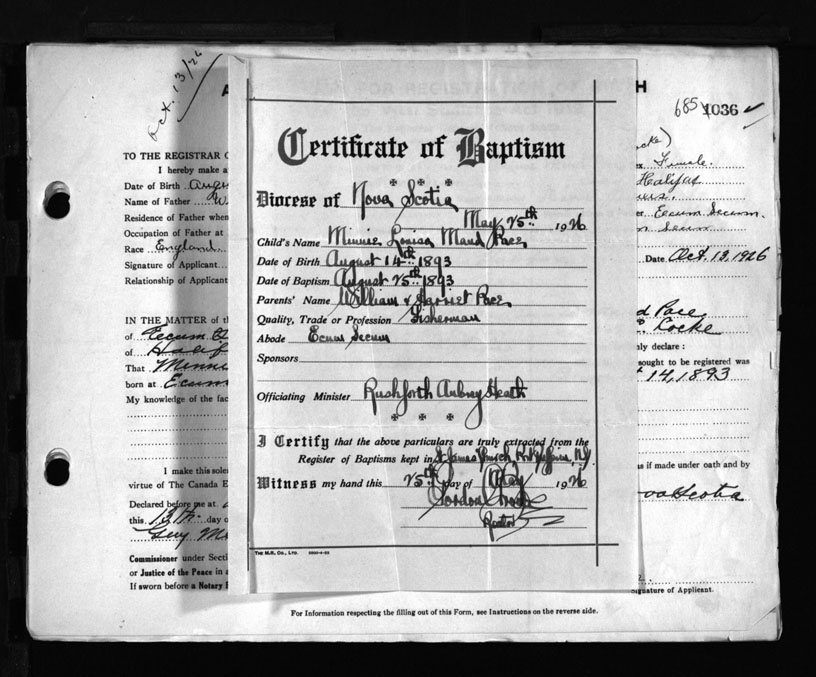 Oct. 13/26
685 1036 ✓
TO THE REGISTRAR
I hereby make a
Date of Birth Aug
Name of Father W
Residence of Father when
Occupation of Father at
Race England
Signature of Applicant
Relationship of Applicant
IN THE MATTER of th
of Eecum
of Halif
That Minni
born at Ecum
My knowledge of the fac
I make this sole
virtue of The Canada E
Declared before me at
this 13th day o
Commissioner under Secti
or Justice of the Peace in a
If sworn before a Notary
Certificate of Baptism
Diocese of Nova Scotia
May 25th 1926
Child's Name Minnie Louisa Maud Pace
Date of Birth August 14th 1893
Date of Baptism August 25th 1893
Parents' Name William & Harriet Pace
Quality, Trade or Profession Fisherman
Abode Ecum Secum
Sponsors
Officiating Minister Rushforth Aubrey Heath
I Certify that the above particulars are truly extracted from the
Register of Baptisms kept in St. James Church
Witness my hand this 25th day of May 1926
Gordon
Rector
H
ocke)
Female.
Halifax
Ecum Secum.
m Secum
Date Oct. 13, 1926
d Pace
Locke
nly declare :
sought to be registered was
14, 1893
as if made under oath and by
ova Scotia
Signature of Applicant.
For Information respecting the filling out of this Form, see Instructions on the reverse side.